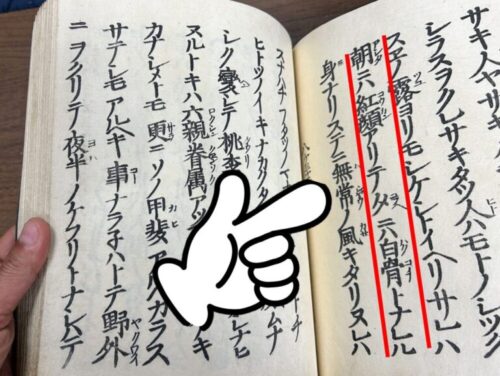 サキ人ヤサキ
シラスヲクレサキタツ人ハモトノシツク
スヱノ露ヨリモシケシトイヘリサレハ
朝ニハ紅顔アリテ夕ニハ白骨トナレル
身ナリステニ無常ノ風キタリヌレハ
スナハチフタツノマ
ヒトツノイキナカク
シク變シテ桃李
ヌルトキハ六親眷屬アツ
カナシメトモ更ニソノ甲斐アルヘカラス
サテシモアルヘキ事ナラ子ハトテ野外
ニヲクリテ夜半ノケフリトナシハテ